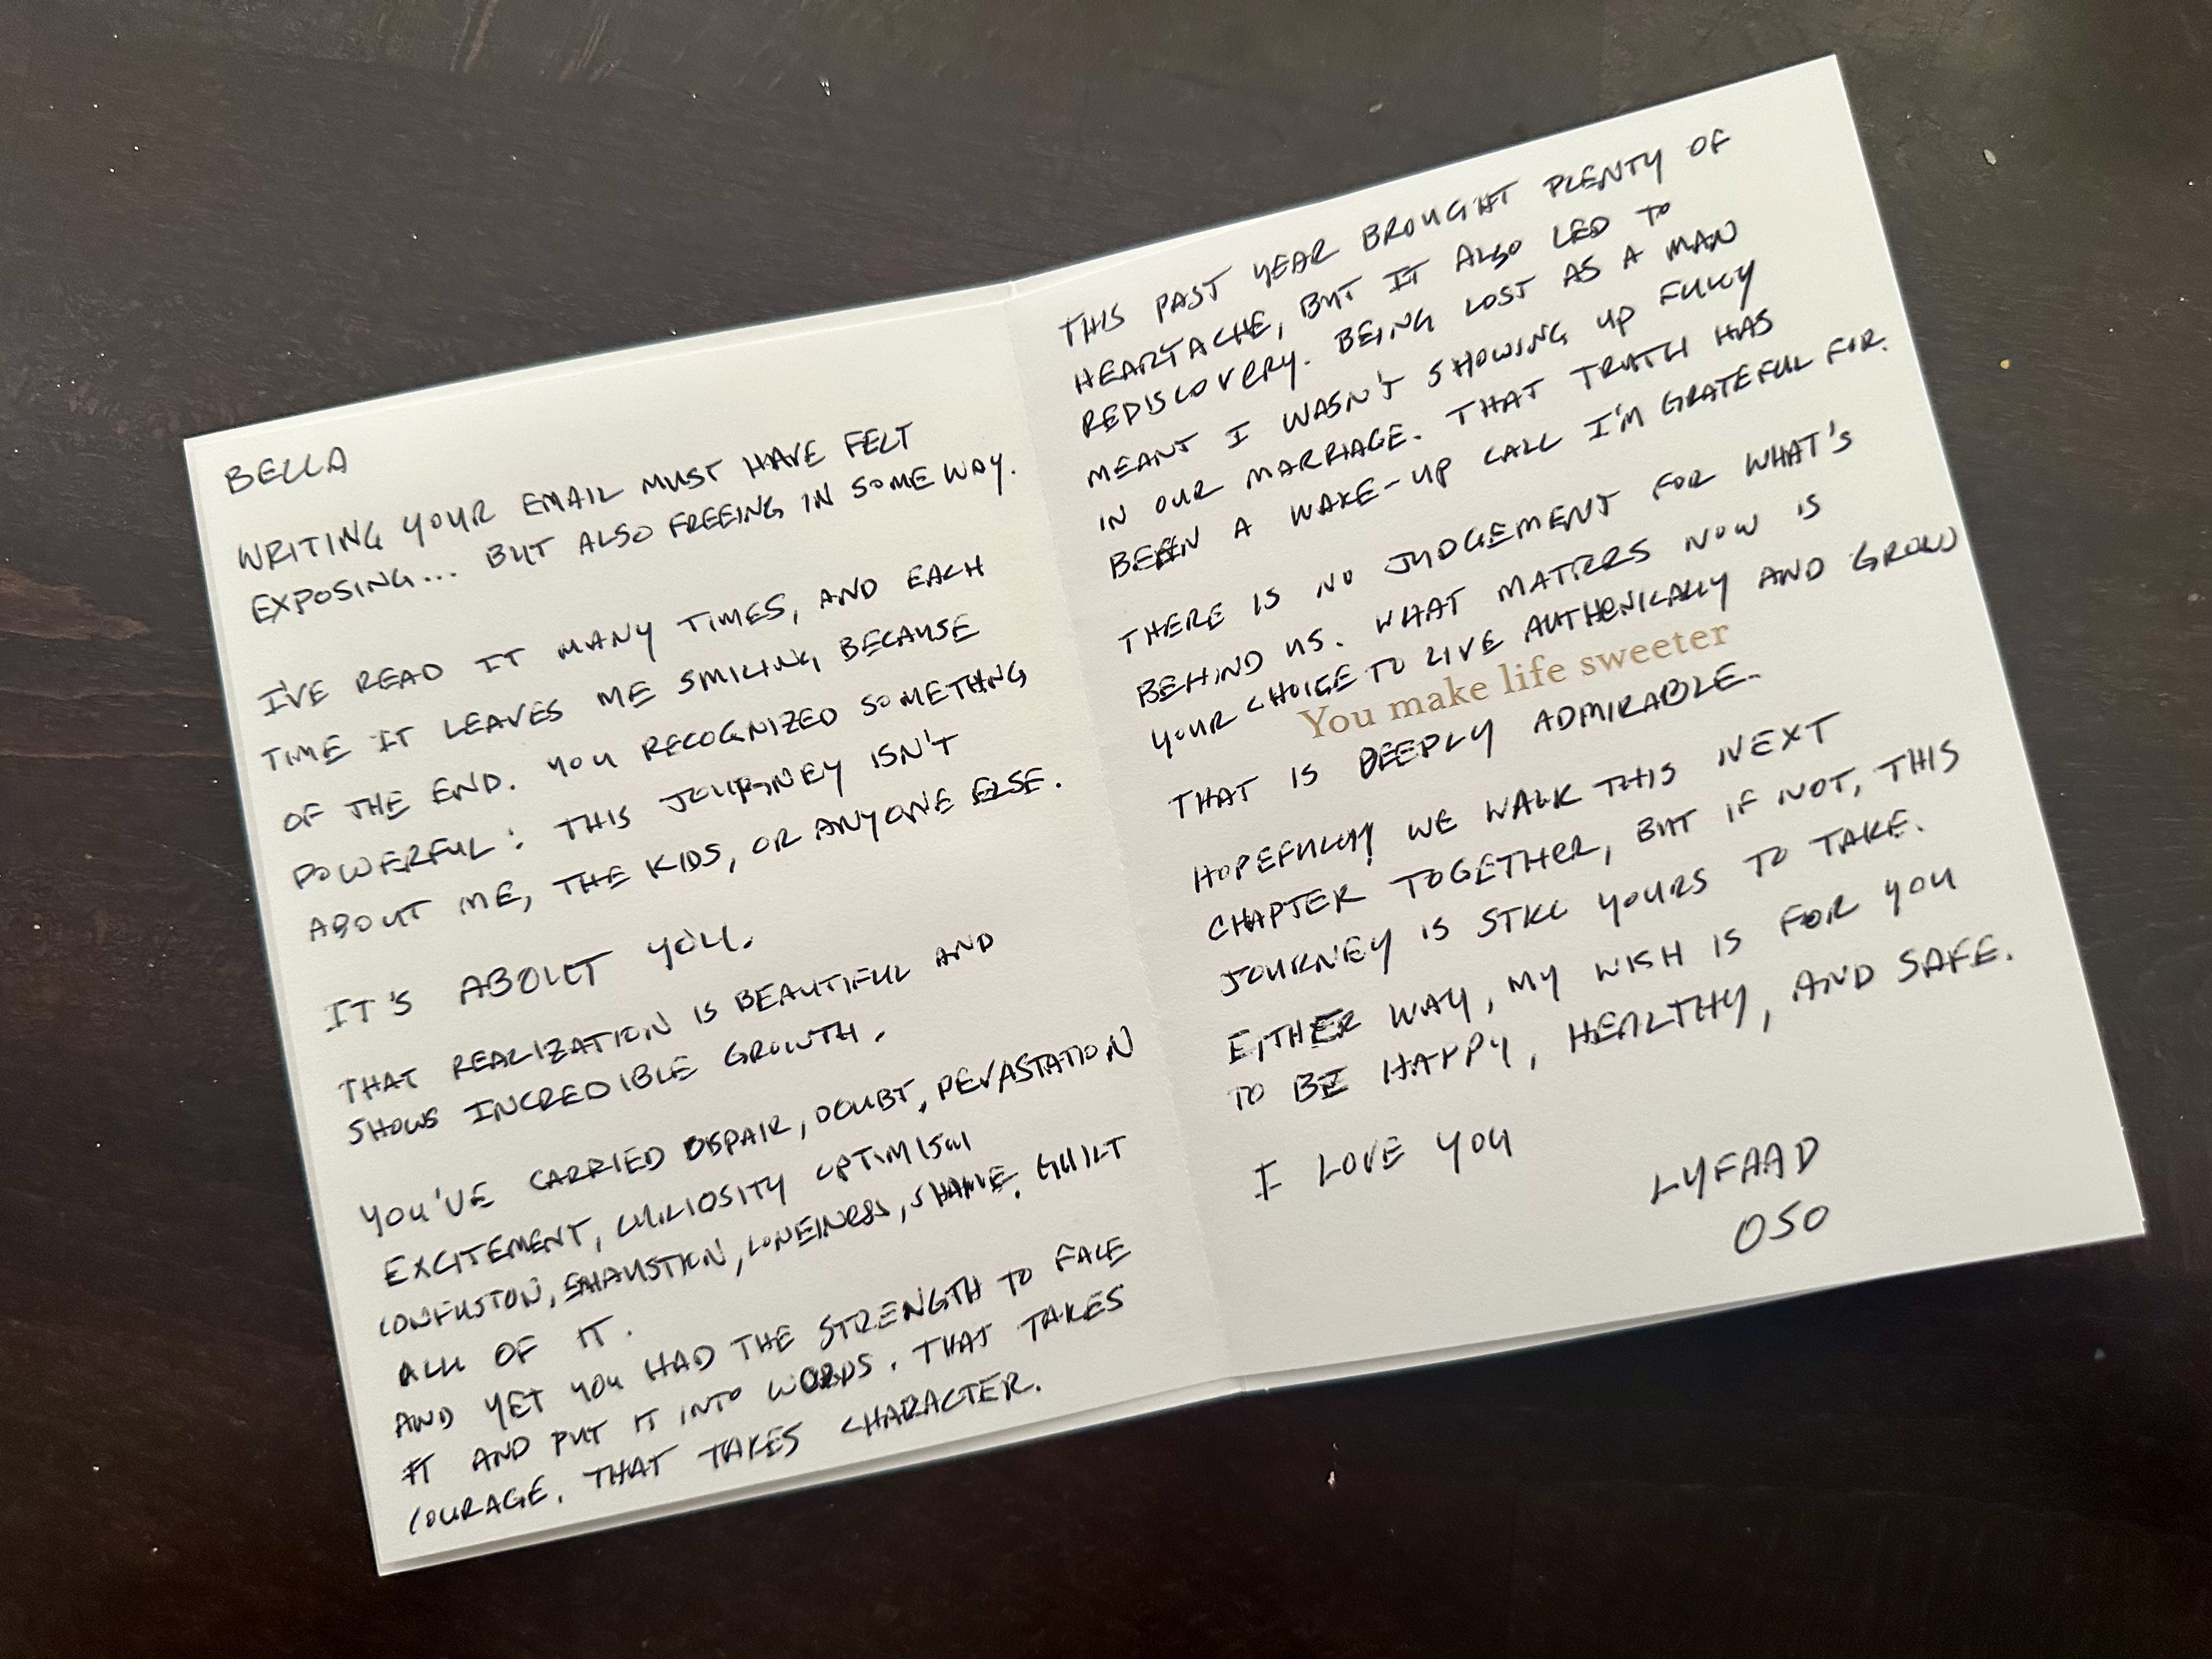 BELLA
WRITING YOUR EMAIL MUST HAVE FELT
EXPOSING... BUT ALSO FREEING IN SOME WAY.
I'VE READ IT MANY TIMES, AND EACH
TIME IT LEAVES ME SMILING BECAUSE
OF THE END. YOU RECOGNIZED SOMETHING
POWERFUL: THIS JOURNEY ISN'T
ABOUT ME, THE KIDS, OR ANYONE ELSE.
IT'S ABOUT YOU.
THAT REALIZATION IS BEAUTIFUL AND
SHOWS INCREDIBLE GROWTH.
YOU'VE CARRIED DESPAIR, DOUBT, DEVASTATION
EXCITEMENT, CURIOSITY OPTIMISM
CONFUSION, EXHAUSTION, LONELINESS, SHAME, GUILT
ALL OF IT.
AND YET YOU HAD THE STRENGTH TO FACE
IT AND PUT IT INTO WORDS. THAT TAKES
COURAGE. THAT TAKES CHARACTER.
THIS PAST YEAR BROUGHT PLENTY OF
HEARTACHE, BUT IT ALSO LED TO
REDISCOVERY. BEING LOST AS A MAN
MEANT I WASN'T SHOWING UP FULLY
IN OUR MARRIAGE. THAT TRUTH HAS
BEEN A WAKE-UP CALL I'M GRATEFUL FOR.
THERE IS NO JUDGEMENT FOR WHAT'S
BEHIND US. WHAT MATTERS NOW IS
YOUR CHOICE TO LIVE AUTHENICALLY AND GROW
You make life sweeter
THAT IS DEEPLY ADMIRABLE.
HOPEFULLY WE WALK THIS NEXT
CHAPTER TOGETHER, BUT IF NOT, THIS
JOURNEY IS STILL YOURS TO TAKE.
EITHER WAY, MY WISH IS FOR YOU
TO BE HAPPY, HEALTHY, AND SAFE.
I LOVE YOU
LYFAAD
OSO